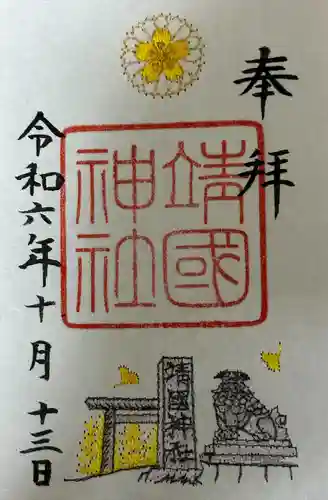 奉拝
靖國
神社
令和六年十月十三日
靖國神社